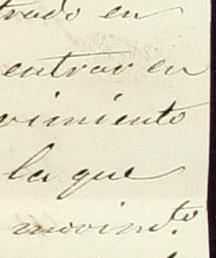 trado en
entrar en
vimiento
la que
movim.to